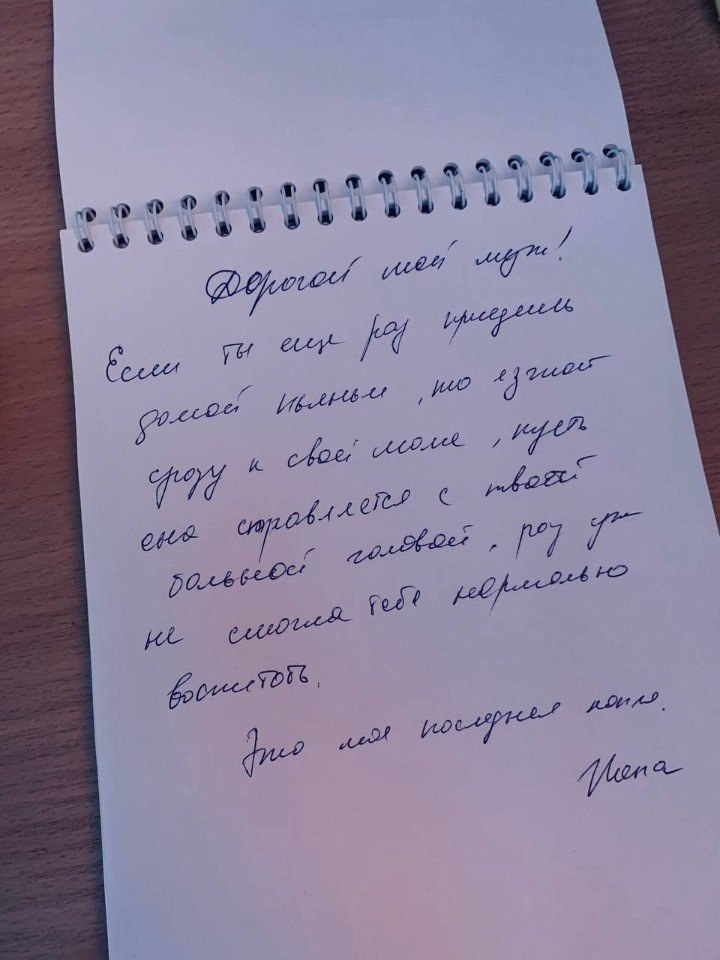 Дорогой мой муж!
Если ты еще раз придешь
домой пьяным, то езжай
сразу к своей маме, пусть
она справляется с твоей
больной головой, раз уж
не смогла тебе нормально
воспитать.
Это моя последняя капля.